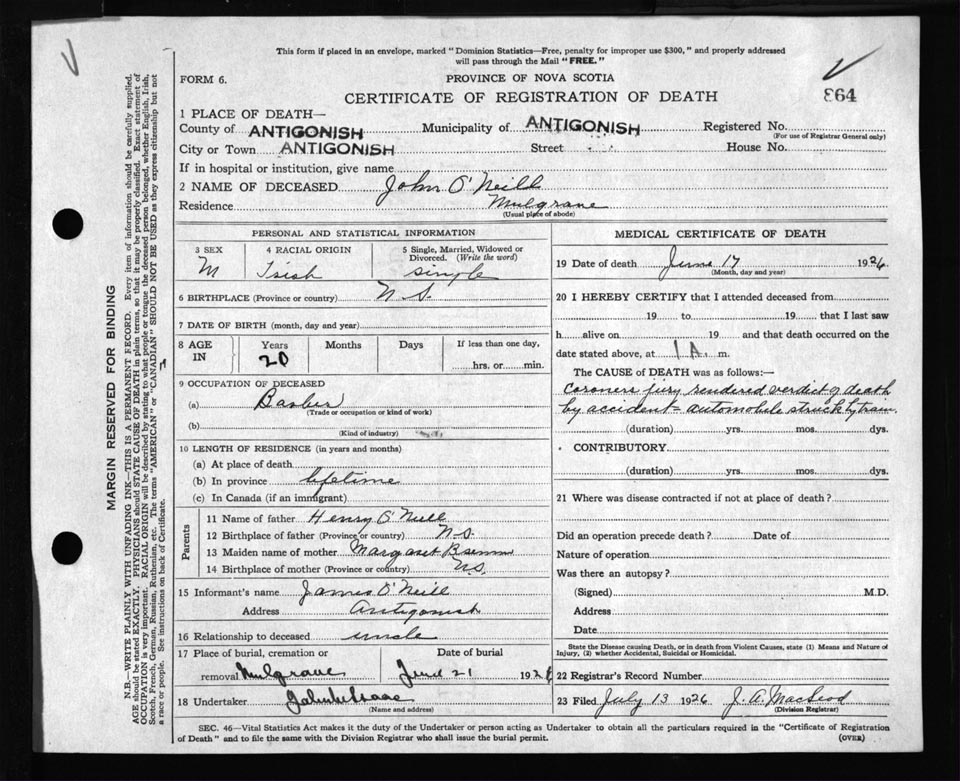 This form if placed in an envelope, marked "Dominion Statistics—Free, penalty for improper use $300," and properly addressed
will pass through the Mail "FREE."
FORM 6.
PROVINCE OF NOVA SCOTIA
CERTIFICATE OF REGISTRATION OF DEATH
864
1 PLACE OF DEATH—
County of ANTIGONISH Municipality of ANTIGONISH Registered No.
(For use of Registrar General only)
City or Town ANTIGONISH Street House No.
If in hospital or institution, give name
2 NAME OF DECEASED John O'Neill
Residence Mulgrave
(Usual place of abode)
PERSONAL AND STATISTICAL INFORMATION
3 SEX 4 RACIAL ORIGIN 5 Single, Married, Widowed or
Divorced. (Write the word)
M Irish single
6 BIRTHPLACE (Province or country) N S.
7 DATE OF BIRTH (month, day and year)
8 AGE IN Years Months Days If less than one day,
20 hrs. or min.
9 OCCUPATION OF DECEASED
(a) Barber
(Trade or occupation or kind of work)
(b)
(Kind of industry)
10 LENGTH OF RESIDENCE (in years and months)
(a) At place of death
(b) In province lifetime
(c) In Canada (if an immigrant)
Parents
11 Name of father Henry O'Neill
12 Birthplace of father (Province or country) N.S.
13 Maiden name of mother Margaret
14 Birthplace of mother (Province or country) N.S.
15 Informant's name James O'Neill
Address Antigonish
16 Relationship to deceased uncle
17 Place of burial, cremation or Date of burial
removal Mulgrave June 21 1926
18 Undertaker
(Name and address)
MEDICAL CERTIFICATE OF DEATH
19 Date of death June 17 1926
(Month, day and year)
20 I HEREBY CERTIFY that I attended deceased from
19 to 19 that I last saw
h alive on 19 and that death occurred on the
date stated above, at 1 A. m.
The CAUSE of DEATH was as follows:—
Coroners jury rendered verdict of death
by accident – automobile struck by train.
(duration) yrs. mos. dys.
CONTRIBUTORY
(duration) yrs. mos. dys.
21 Where was disease contracted if not at place of death?
Did an operation precede death? Date of
Nature of operation
Was there an autopsy?
(Signed) M.D.
Address
Date
State the Disease causing Death, or in death from Violent Causes, state (1) Means and Nature of
Injury, (2) whether Accidental, Suicidal or Homicidal.
22 Registrar's Record Number
23 Filed July 13 1926 J. A. MacLeod
(Division Registrar)
SEC. 46—Vital Statistics Act makes it the duty of the Undertaker or person acting as Undertaker to obtain all the particulars required in the "Certificate of Registration
of Death" and to file the same with the Division Registrar who shall issue the burial permit.
(OVER)
MARGIN RESERVED FOR BINDING
N.B.—WRITE PLAINLY WITH UNFADING INK—THIS IS A PERMANENT RECORD. Every item of information should be carefully supplied.
AGE should be stated EXACTLY. PHYSICIANS should STATE CAUSE OF DEATH in plain terms, so that it may be properly classified. Exact statement of
OCCUPATION is very important. RACIAL ORIGIN will be described by stating to what people or tongue the deceased person belonged, whether English, Irish,
Scotch, French, German, Russian, Ruthenian, etc. The terms "AMERICAN" or "CANADIAN" SHOULD NOT BE USED as they express citizenship but not
a race or people. See instructions on back of Certificate.